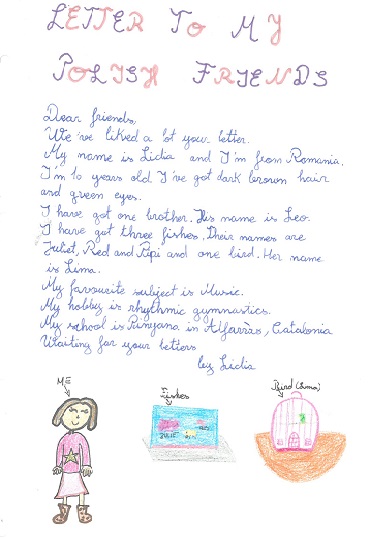 LETTER TO MY
POLISH FRIENDS
Dear friends,
We've liked a lot your letter.
My name is Lidia and I'm from Romania.
I'm 10 years old. I've got dark brown hair
and green eyes.
I have got one brother. His name is Leo.
I have got three fishes. Their names are
Juliet, Red and Pipi and one bird. Her name
is Lima.
My favourite subject is Music.
My hobby is rhythmic gymnastics.
My school is Pinyana in Alfarràs, Catalonia
Waiting for your letters
by Lidia
ME
Fishes
Bird (Lima)